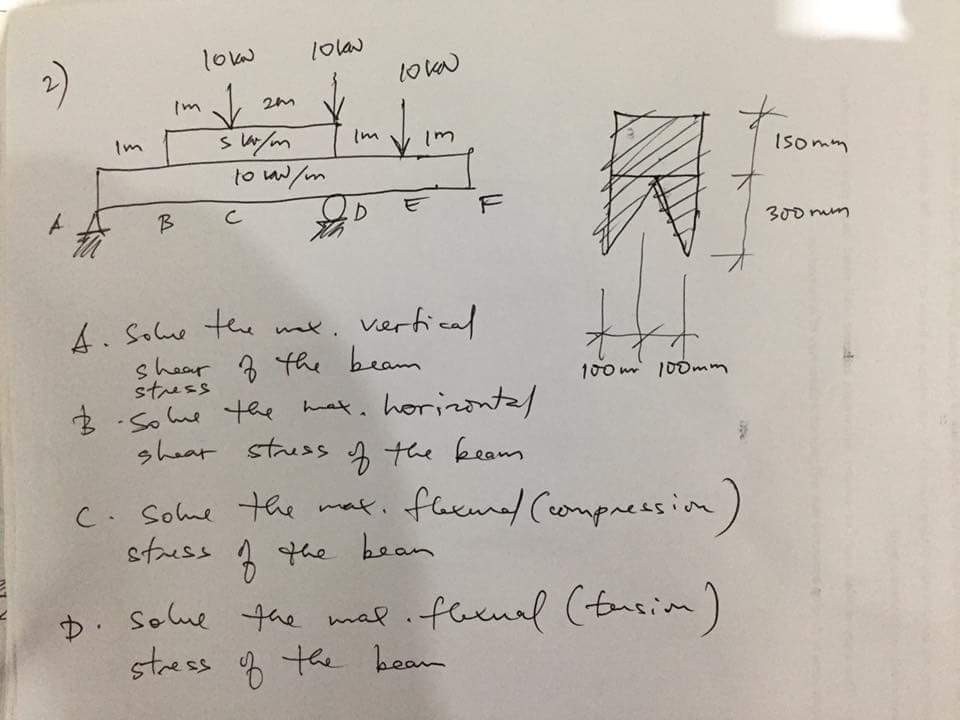 2)
10 kN 10 kN 10 kN
1m 2m
1m 5 kN/m 1m 1m
10 kN/m
A B C D E F
150mm
300mm
100m 100mm
A. Solve the max. vertical
shear of the beam
stress
B. Solve the max. horizontal
shear stress of the beam
C. Solve the max. flexural (compression)
stress of the beam
D. Solve the max. flexural (tension)
stress of the beam